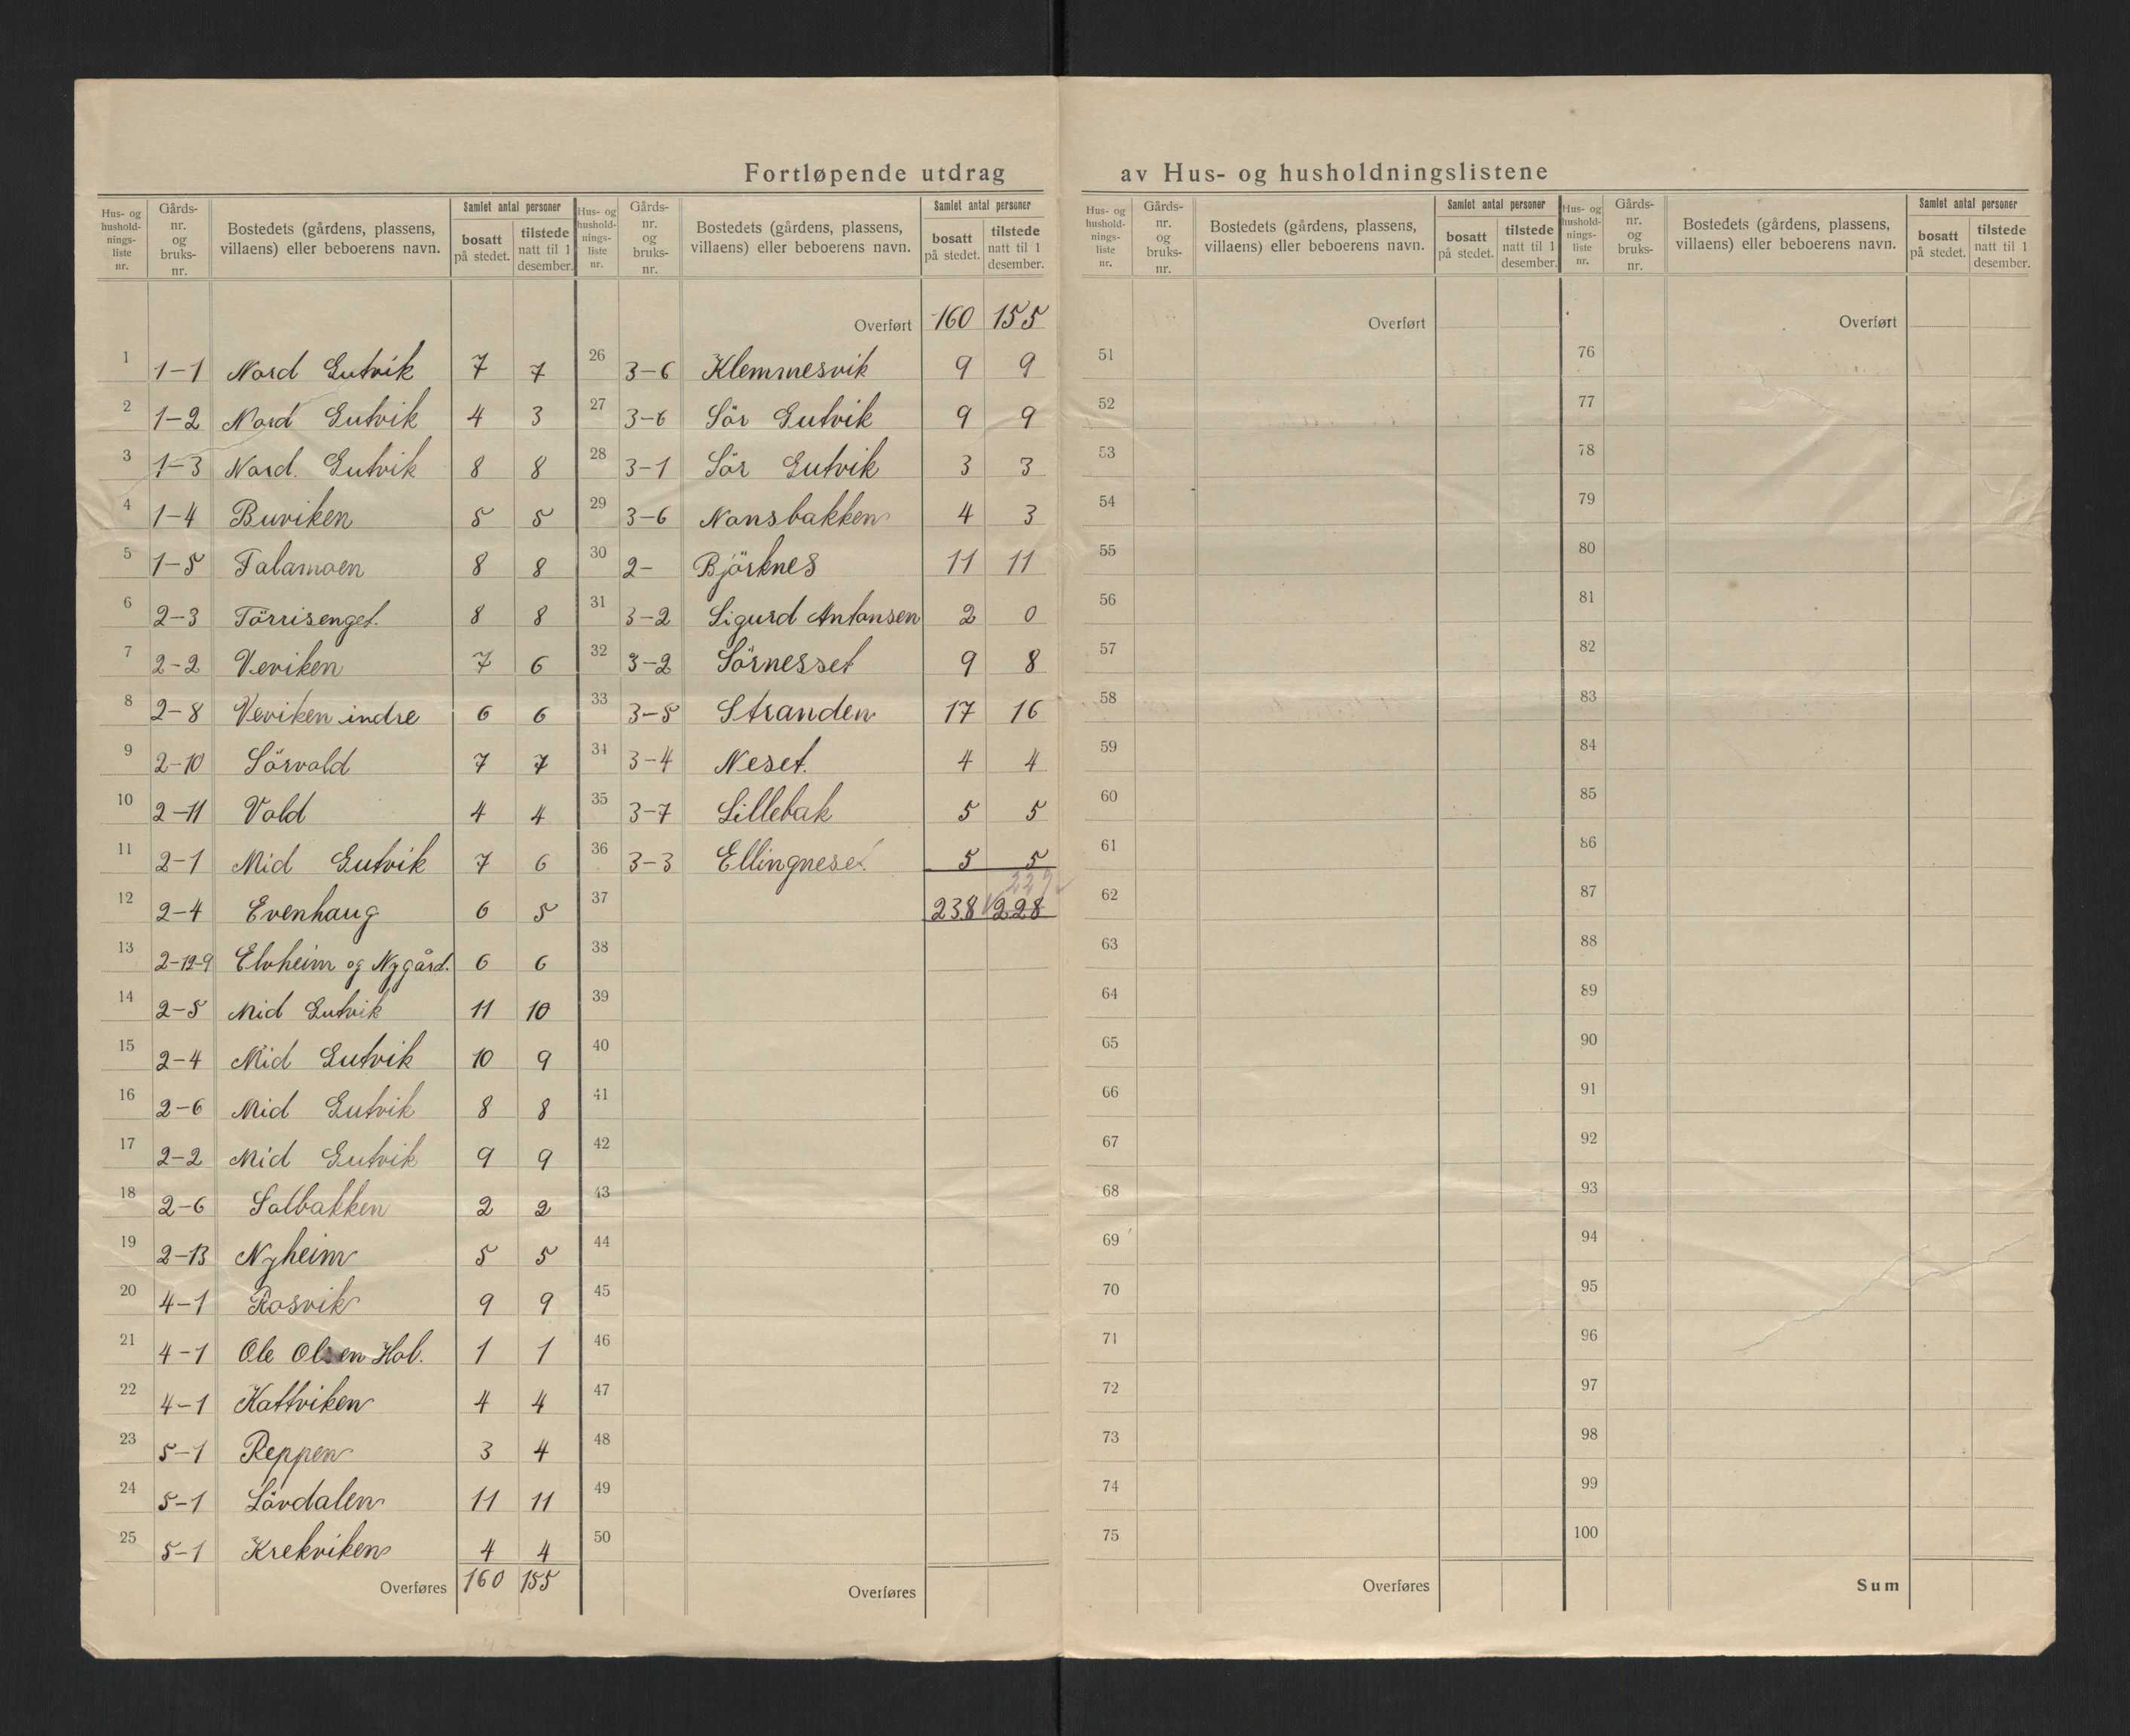 Fortløpende utdrag av Hus- og husholdningslistene
Hus- og hushold-nings-liste nr. Gårds-nr. og bruks-nr. Bostedets (gårdens, plassens, villaens) eller beboerens navn. Samlet antal personer bosatt på stedet. tilstede natt til 1 desember.
1 1-1 Nord Gutvik 7 7
2 1-2 Nord Gutvik 4 3
3 1-3 Nord. Gutvik 8 8
4 1-4 Buviken 5 5
5 1-5 Falamoen 8 8
6 2-3 Törrisenget. 8 8
7 2-2 Veviken 7 6
8 2-8 Veviken indre 6 6
9 2-10 Sörvold 7 7
10 2-11 Vold 4 4
11 2-1 Mid Gutvik 7 6
12 2-4 Evenhaug 6 5
13 2-12-9 Elvheim og Nygård. 6 6
14 2-5 Mid Gutvik 11 10
15 2-4 Mid Gutvik 10 9
16 2-6 Mid Gutvik 8 8
17 2-2 Mid Gutvik 9 9
18 2-6 Solbakken 2 2
19 2-13 Nyheim 5 5
20 4-1 Rosvik 9 9
21 4-1 Ole Olsen Hol. 1 1
22 4-1 Kattviken 4 4
23 5-1 Reppen 3 4
24 5-1 Lövdalen 11 11
25 5-1 Krekviken 4 4
Overføres 160 155
Hus- og hushold-nings-liste nr. Gårds-nr. og bruks-nr. Bostedets (gårdens, plassens, villaens) eller beboerens navn. Samlet antal personer bosatt på stedet. tilstede natt til 1 desember.
Overført 160 155
26 3-6 Klemmesvik 9 9
27 3-6 Sör Gutvik 9 9
28 3-1 Sör Gutvik 3 3
29 3-6 Nonsbakken 4 3
30 2- Björknes 11 11
31 3-2 Sigurd Antonsen 2 0
32 3-2 Sörnesset 9 8
33 3-5 Stranden 17 16
34 3-4 Neset. 4 4
35 3-7 Lillebak 5 5
36 3-3 Ellingneset. 5 5
229
37 238 228
38
39
40
41
42
43
44
45
46
47
48
49
50
Overføres
Hus- og hushold-nings-liste nr. Gårds-nr. og bruks-nr. Bostedets (gårdens, plassens, villaens) eller beboerens navn. Samlet antal personer bosatt på stedet. tilstede natt til 1 desember.
Overført
51
52
53
54
55
56
57
58
59
60
61
62
63
64
65
66
67
68
69
70
71
72
73
74
75
Overføres
Hus- og hushold-nings-liste nr. Gårds-nr. og bruks-nr. Bostedets (gårdens, plassens, villaens) eller beboerens navn. Samlet antal personer bosatt på stedet. tilstede natt til 1 desember.
Overført
76
77
78
79
80
81
82
83
84
85
86
87
88
89
90
91
92
93
94
95
96
97
98
99
100
Sum